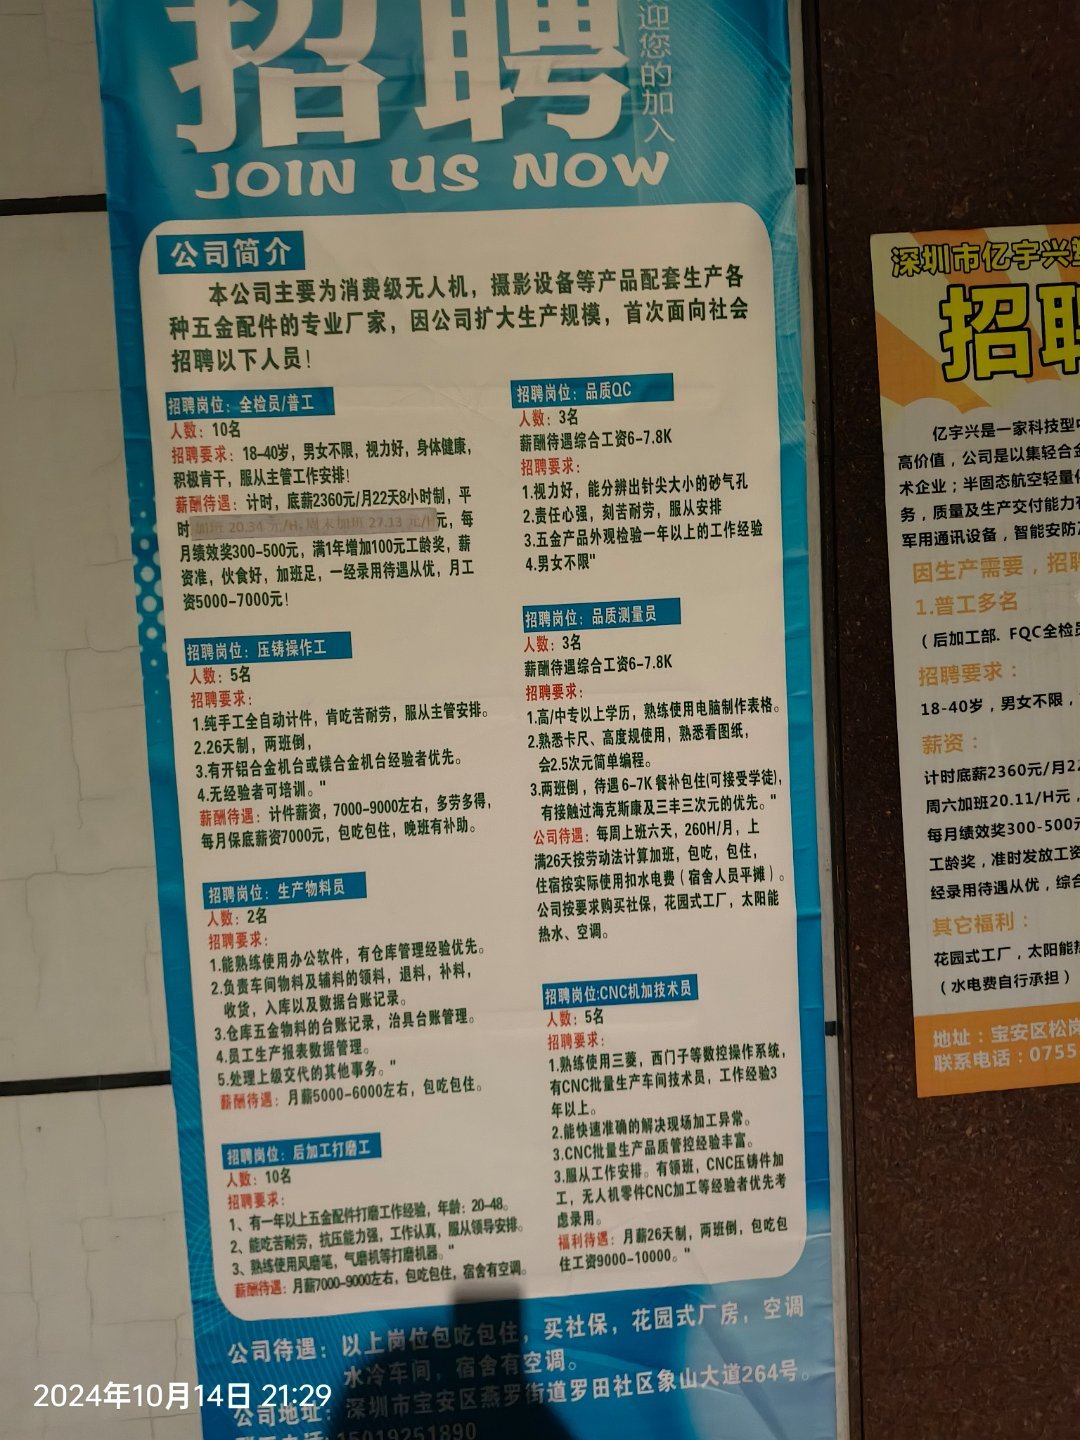 招聘
迎您的加入
JOIN US NOW
公司简介
本公司主要为消费级无人机，摄影设备等产品配套生产各
种五金配件的专业厂家，因公司扩大生产规模，首次面向社会
招聘以下人员！
招聘岗位：全检员/普工
人数：10名
招聘要求：18-40岁，男女不限，视力好，身体健康，
积极肯干，服从主管工作安排！
薪酬待遇：计时，底薪2360元/月22天8小时制，平
时加班 20.34 元/H,周末加班 27.13 元/H元，每
月绩效奖300-500元，满1年增加100元工龄奖，薪
资准，伙食好，加班足，一经录用待遇从优，月工
资5000-7000元！
招聘岗位：压铸操作工
人数：5名
招聘要求：
1.纯手工全自动计件，肯吃苦耐劳，服从主管安排。
2.26天制，两班倒，
3.有开铝合金机台或镁合金机台经验者优先。
4.无经验者可培训。"
薪酬待遇：计件薪资，7000-9000左右，多劳多得，
每月保底薪资7000元，包吃包住，晚班有补助。
招聘岗位：生产物料员
人数：2名
招聘要求：
1.能熟练使用办公软件，有仓库管理经验优先。
2.负责车间物料及辅料的领料，退料，补料，
收货，入库以及数据台账记录。
3.仓库五金物料的台账记录，治具台账管理。
4.员工生产报表数据管理。
5.处理上级交代的其他事务。"
薪酬待遇：月薪5000-6000左右，包吃包住。
招聘岗位：后加工打磨工
人数：10名
招聘要求：
1、有一年以上五金配件打磨工作经验，年龄：20-48。
2、能吃苦耐劳，抗压能力强，工作认真，服从领导安排。
3、熟练使用风磨笔，气磨机等打磨机器。"
薪酬待遇：月薪7000-9000左右，包吃包住，宿舍有空调。
招聘岗位：品质QC
人数：3名
薪酬待遇综合工资6-7.8K
招聘要求：
1.视力好，能分辨出针尖大小的砂气孔
2.责任心强，刻苦耐劳，服从安排
3.五金产品外观检验一年以上的工作经验
4.男女不限"
招聘岗位：品质测量员
人数：3名
薪酬待遇综合工资6-7.8K
招聘要求：
1.高/中专以上学历，熟练使用电脑制作表格。
2.熟悉卡尺、高度规使用，熟悉看图纸，
会2.5次元简单编程。
3.两班倒，待遇6-7K餐补包住(可接受学徒)，
有接触过海克斯康及三丰三次元的优先。"
公司待遇：每周上班六天，260H/月，上
满26天按劳动法计算加班，包吃，包住，
住宿按实际使用扣水电费（宿舍人员平摊）。
公司按要求购买社保，花园式工厂，太阳能
热水、空调。
招聘岗位:CNC机加技术员
人数：5名
招聘要求：
1.熟练使用三菱，西门子等数控操作系统，
有CNC批量生产车间技术员，工作经验3
年以上。
2.能快速准确的解决现场加工异常。
3.CNC批量生产品质管控经验丰富。
3.服从工作安排。有领班，CNC压铸件加
工，无人机零件CNC加工等经验者优先考
虑录用。
福利待遇：月薪26天制，两班倒，包吃包
住工资9000-10000。"
公司待遇：以上岗位包吃包住，买社保，花园式厂房，空调
水冷车间，宿舍有空调。
公司地址：深圳市宝安区燕罗街道罗田社区象山大道264号。
15019251890
深圳市亿宇兴
招聘
亿宇兴是一家科技型
高价值，公司是以集轻合金
术企业；半固态航空轻量
务，质量及生产交付能力
军用通讯设备，智能安防
因生产需要，招聘
1.普工多名
（后加工部. FQC全检员
招聘要求：
18-40岁，男女不限，
薪资：
计时底薪2360元/月22
周六加班20.11/H元，
每月绩效奖300-500元
工龄奖，准时发放工资
经录用待遇从优，综合
其它福利：
花园式工厂，太阳能热
（水电费自行承担）
地址：宝安区松岗
联系电话：0755
2024年10月14日 21:29